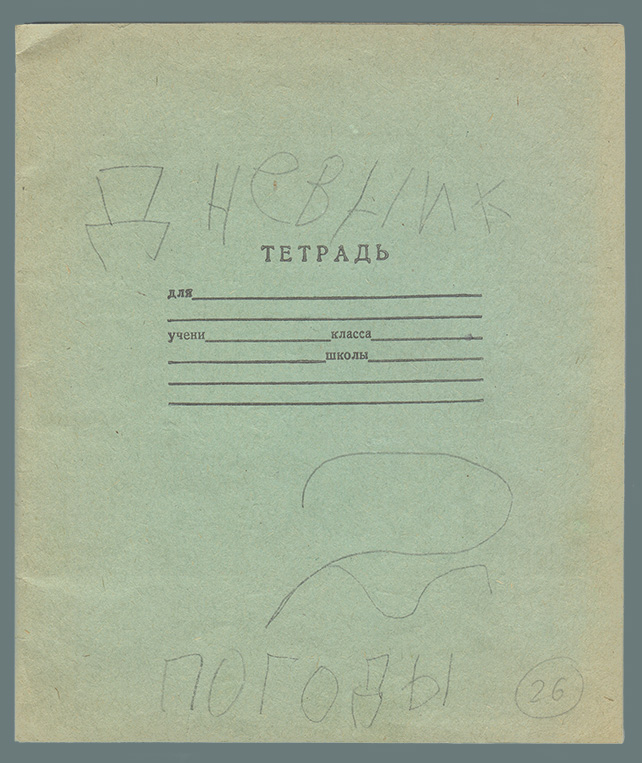 ДНЕВНИК
ТЕТРАДЬ
для
учени класса
школы
ПОГОДЫ
26